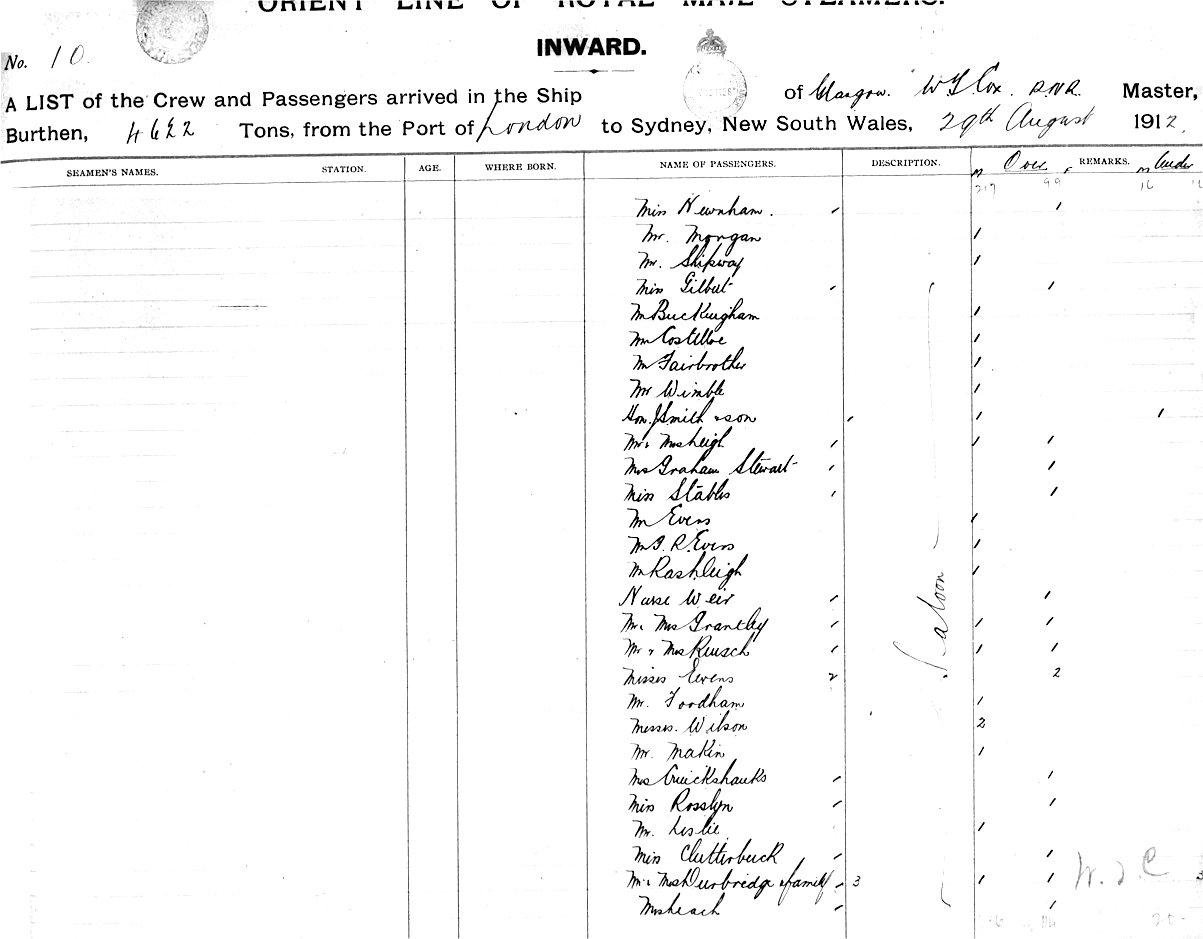 ORIENT LINE OF ROYAL MAIL STEAMERS.
No. 10.
INWARD.
A LIST of the Crew and Passengers arrived in the Ship of Glasgow. W G Cox. R.N.R. Master,
Burthen, 4622 Tons, from the Port of London to Sydney, New South Wales, 29th August 1912.
SEAMEN'S NAMES. STATION. AGE. WHERE BORN. NAME OF PASSENGERS. DESCRIPTION. m Over F REMARKS. m Under
217 99 16
Miss Newnham. / /
Mr. Morgan /
Mr. Shipway /
Miss Gilbert / /
Mr Buckingham /
Mr Costelloe /
Mr Fairbrother /
Mr Wimble /
Hon. J Smith & son / / /
Mr & Mrs Leigh / / /
Mrs Graham Stewart / /
Miss Stables / /
Mr Evens /
Mr G. R. Evens /
Mr Rashleigh /
Saloon
Nurse Weir / /
Mr & Mrs Grantley / / /
Mr & Mrs Reusch / / /
Misses Evens 2 2
Mr. Foodham /
Messrs. Wilson 2
Mr. Makin /
Mrs Cruickshanks / /
Miss Rosslyn / /
Mr. Leslie /
Miss Clutterbuck / /
Mr & Mrs Durbridge & family / 3 / / 3
W. & C
Mrs Leach / /